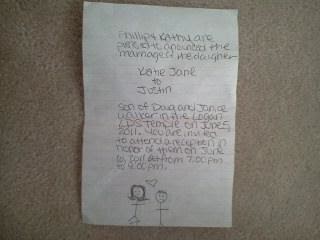 Phillip & Kathy are
pleased to anounced the
marriage of the daughter
Katie Jane
to
Justin
Son of Doug and Janice
Walker in the Logan
LDS Temple on June 5
2011. You are invited
to attend a reception in
honor of them on June
10, 2011 at from 7:00 pm
to 9:00 pm.